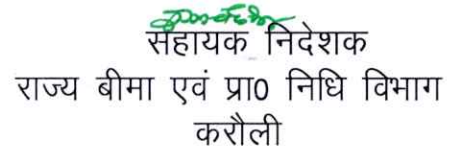 सहायक निदेशक
राज्य बीमा एवं प्रा0 निधि विभाग
करौली